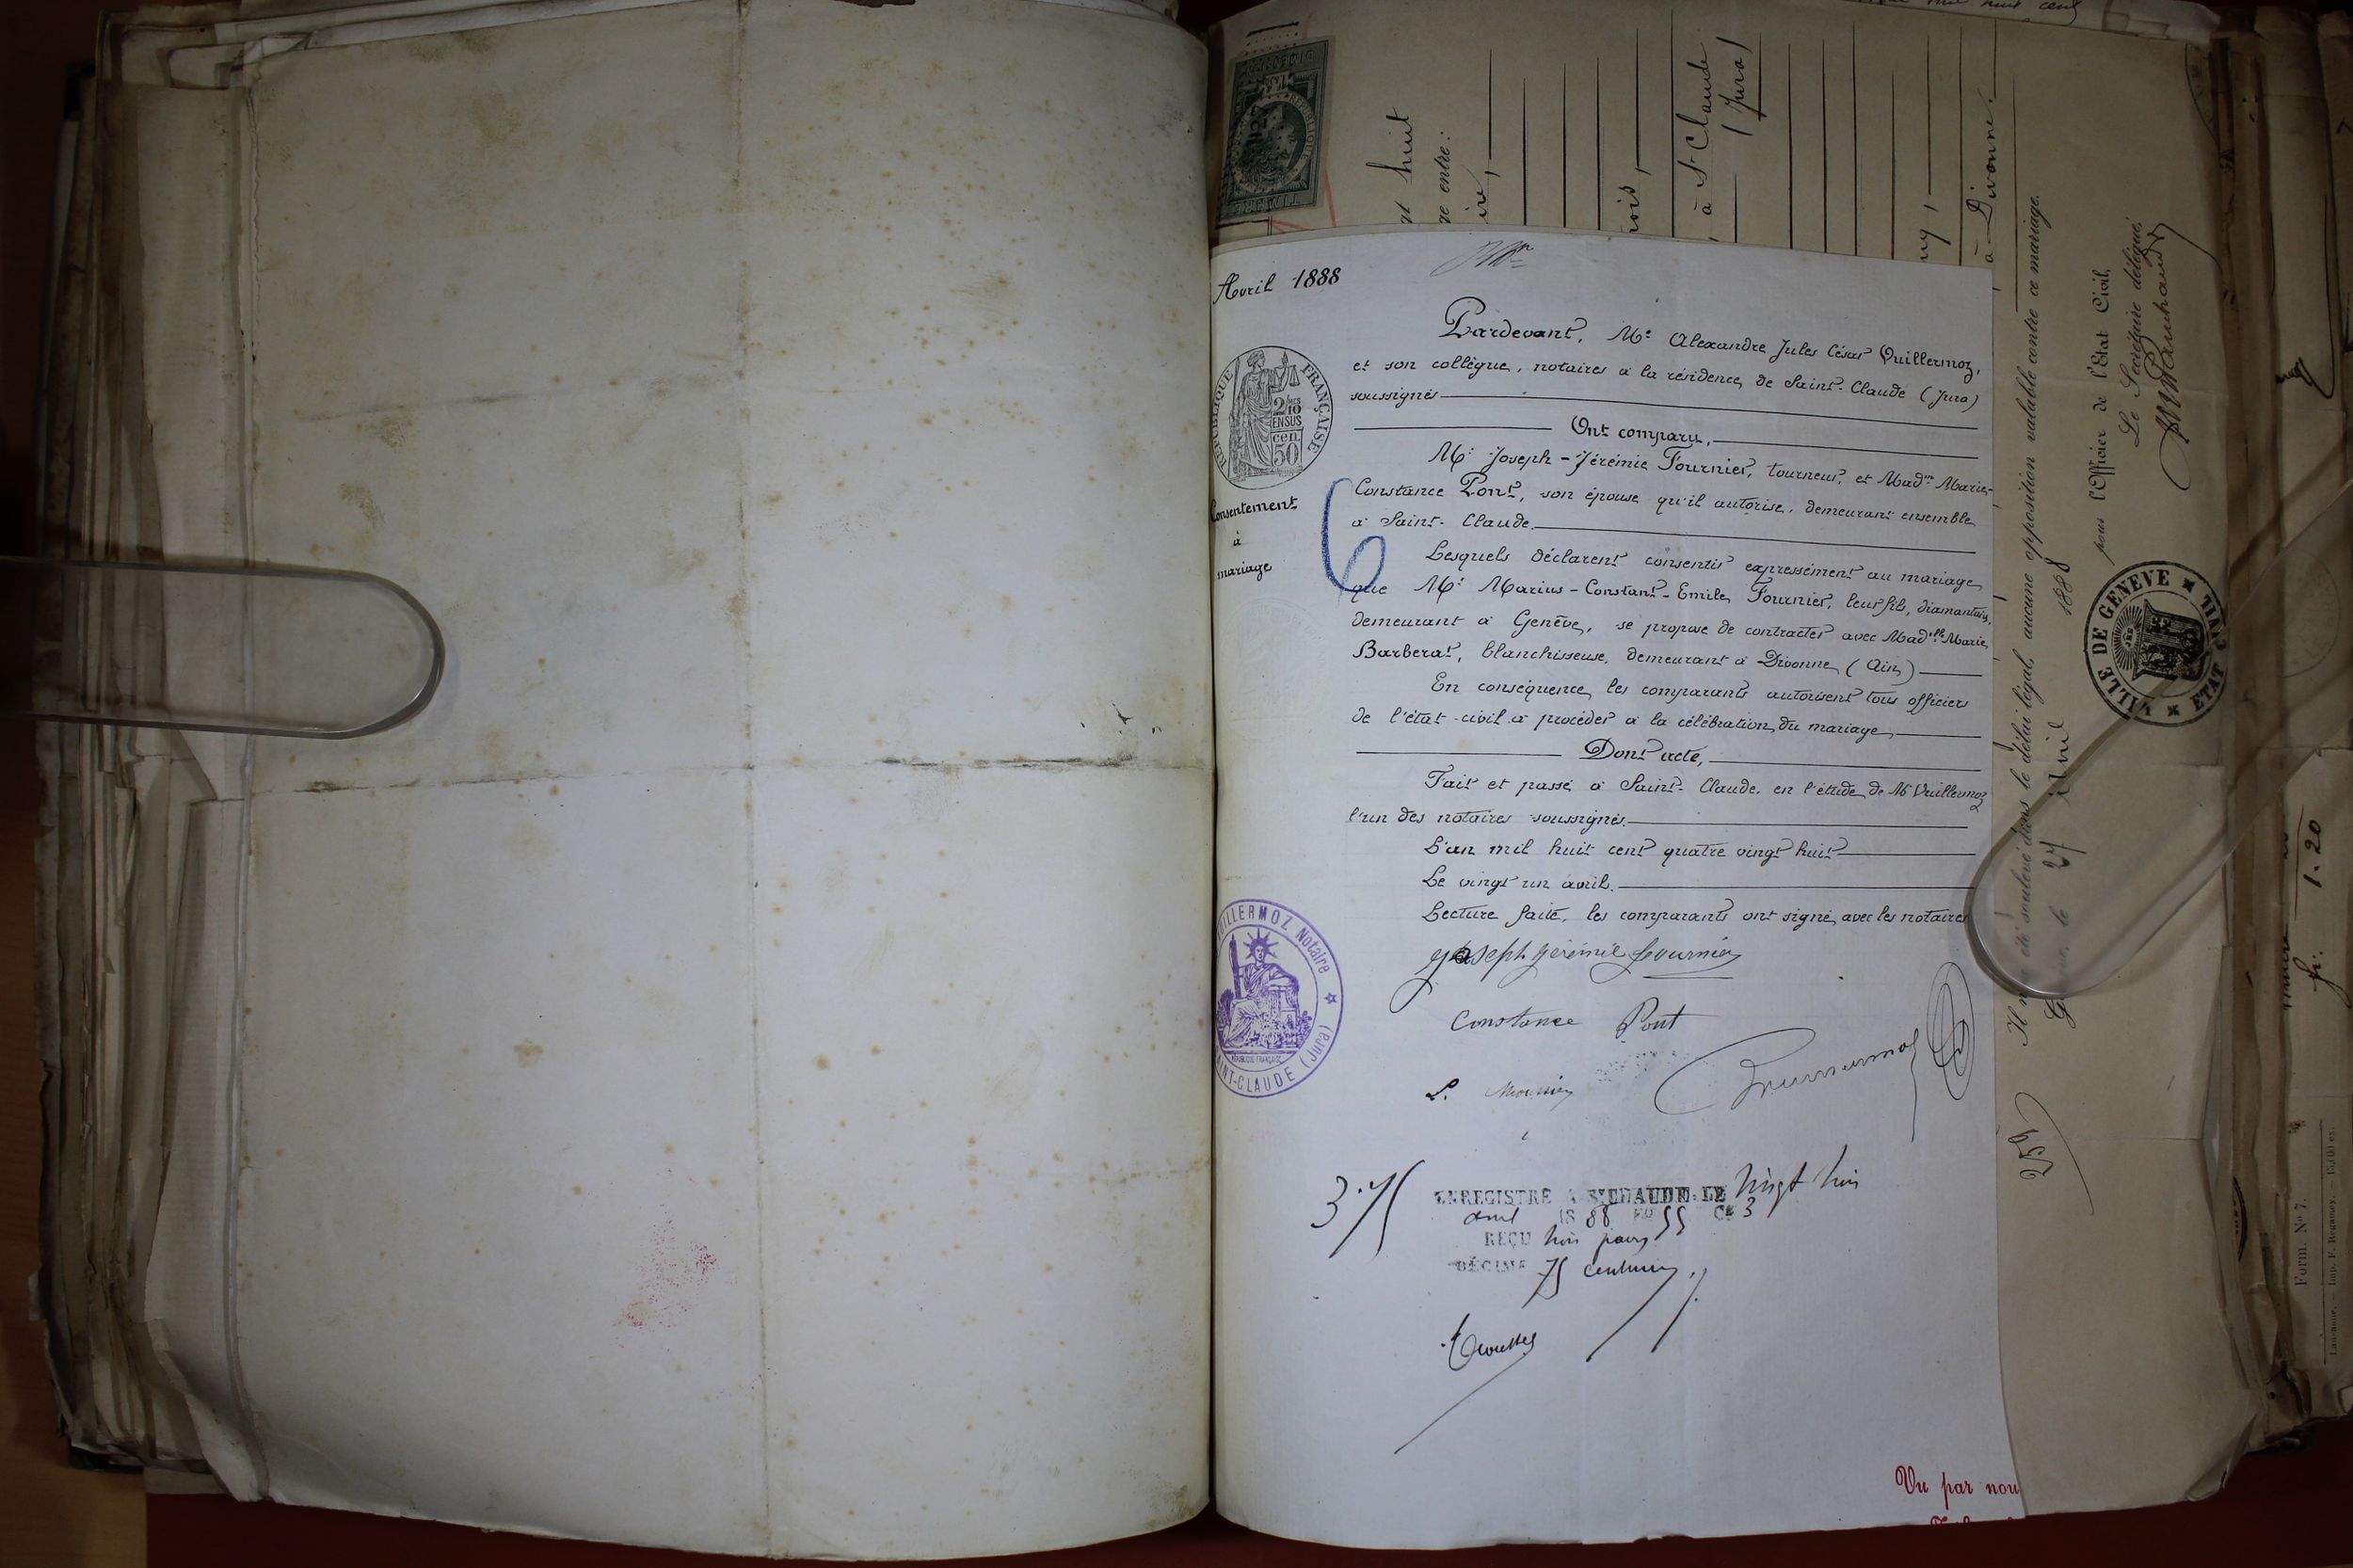 Avril 1888
Pardevant, Me Alexandre Jules César Vuillermoz,
et son collègue, notaires à la résidence de Saint-Claude (Jura)
soussignés
Ont comparu,
Mr Joseph-Jérémie Fournier, tourneur, et Madme Marie-
Constance Pont, son épouse qu'il autorise, demeurant ensemble
à Saint-Claude.
Lesquels déclarent consentir expressément au mariage
que Mr Marius-Constant-Emile Fournier, leur fils, diamantaire,
demeurant à Genève, se propose de contracter avec Madelle Marie
Barberat, blanchisseuse, demeurant à Divonne (Ain)
En conséquence les comparants autorisent tous officiers
de l'état-civil à procéder à la célébration du mariage
Dont acte,
Fait et passé à Saint-Claude, en l'étude de Me Vuillermoz
l'un des notaires soussignés.
L'an mil huit cent quatre vingt huit
Le vingt un avril.
Lecture faite, les comparants ont signé avec les notaires
Joseph Jérémie fournier
Constance Pont
L.
Vuillermoz
Consentement
à
mariage
RÉPUBLIQUE FRANÇAISE
2/10
EN SUS
cen.
50
VUILLERMOZ Notaire
SAINT-CLAUDE (Jura)
RÉPUBLIQUE FRANÇAISE
6
3.75
ENREGISTRÉ A St CLAUDE LE vingt
avril 1888 Fo 55 Ce 3
REÇU trois
DÉCIME 75 centimes
Vu par nou
huit
entre :
à St Claude
(Jura)
à Divonne.
Il n'a été soulevé dans le délai légal, aucune opposition valable contre ce mariage.
le 27 Avril 1888
pour l'Officier de l'Etat Civil,
Le Secrétaire délégué,
VILLE DE GENÈVE
ETAT CIVIL
259
fr. 1.20
Form. No 7.